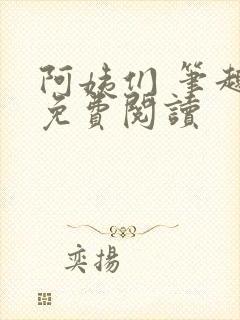 阿姨们 筆趣
免費閱讀
奕揚